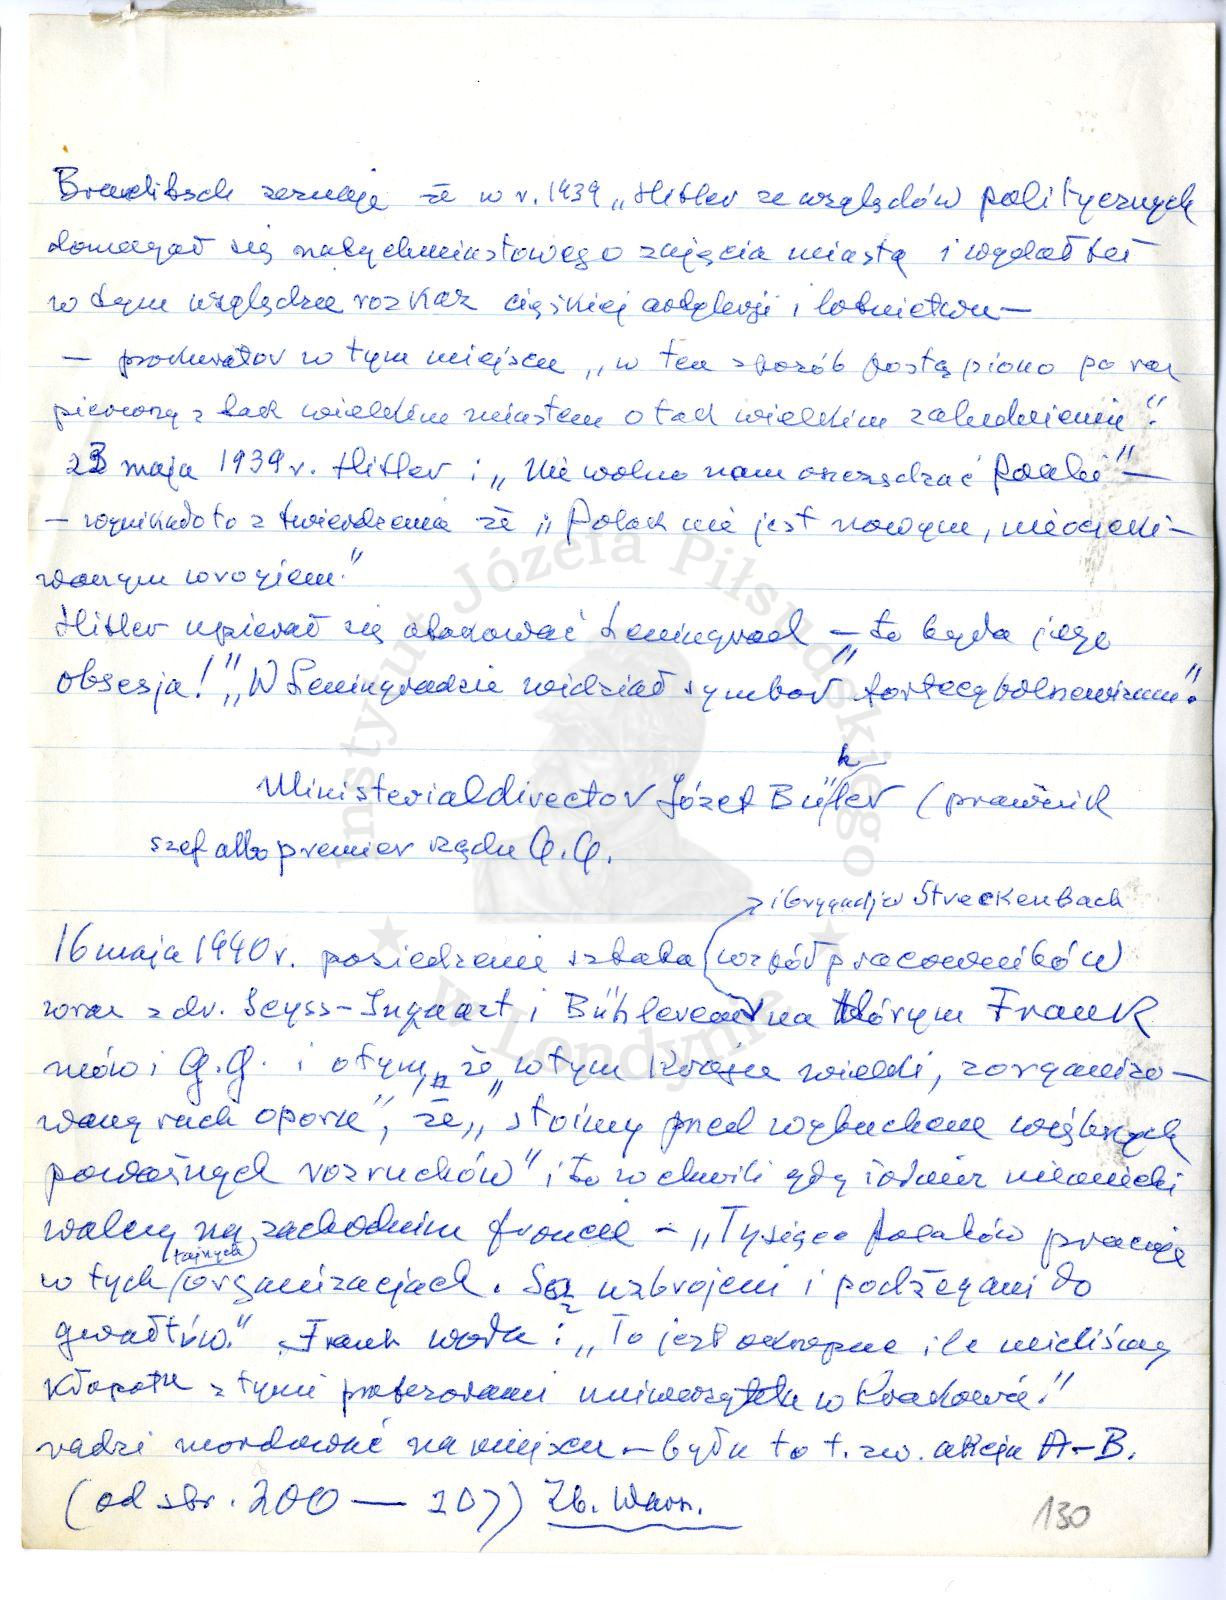 zeznaje że w r. 1939 „Hitler ze względów politycznych
domagał się natychmiastowego zajęcia miasta i wydał też
w tym względzie rozkaz ciężkiej artylerji i lotnictwu —
— prokurator w tym miejscu „w ten sposób postąpiono po raz
pierwszy z tak wielkim miastem o tak wielkim zaludnieniu".
23 maja 1939 r. Hitler: „Nie wolno nam oszczędzać Polski" —
— wynikało to z twierdzenia że „Polak nie jest nowym, nieoczeki-
wanym wrogiem."
Hitler upierał się atakować Leningrad — „to była jego
obsesja!" „W Leningradzie widział symbol fortecy bolszewizmu".
Ministerialdirector Józef Bühler (prawnik
szef albo premier rządu G.G.
i brygadjer Streckenbach
16 maja 1940 r. posiedzenie sztaba współpracowników
wraz z dr. Seyss-Inquart i Bühlerem na którym Frank
mówi G.G. i o tym, „że w tym kraju wielki, zorganizo-
wany ruch oporu", że „stoimy przed wybuchem większych
poważnych rozruchów" i to w chwili gdy żołnierz niemiecki
walczy na zachodnim froncie — „Tysiące Polaków pracuje
w tych tajnych organizacjach. Są uzbrojeni i podżegani do
gwałtów." Frank woła: „To jest okropne ile mieliśmy
kłopotu z tymi profesorami uniwersytetu w Krakowie."
radzi mordować na miejscu — była to t. zw. akcja A-B.
(od str. 200 — 207) Zb. Warn.
130
Instytut Józefa Piłsudskiego
★ w Londynie ★